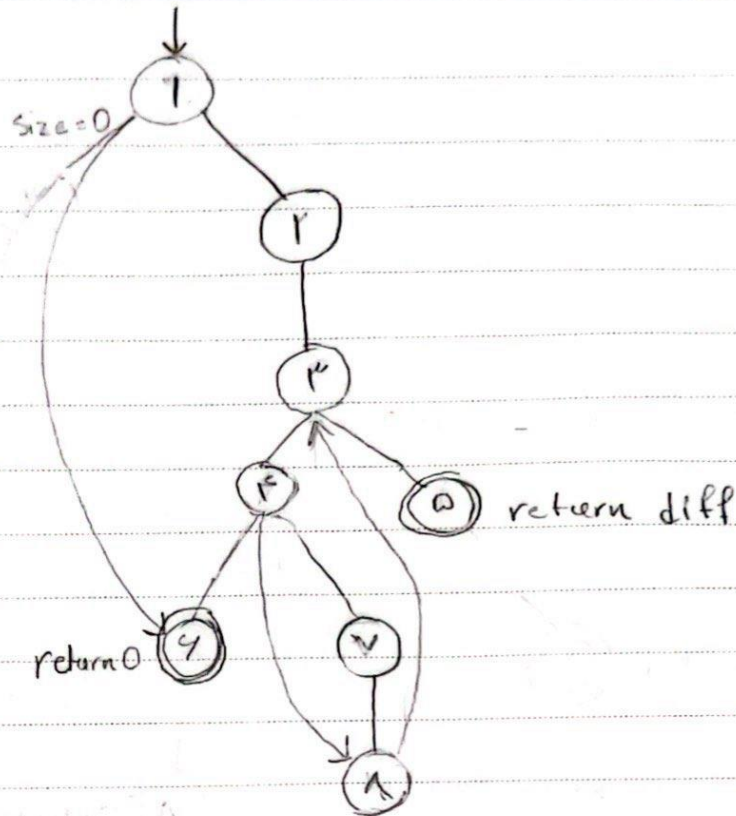 ۱
Size=0
۲
۳
۴
۵ return diff
return 0 ۶
۷
۸